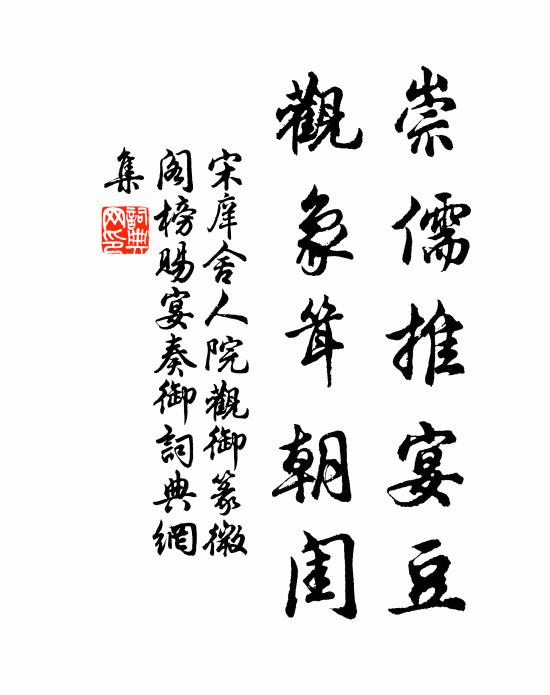 崇儒推宴豆
觀象聳朝闺
宋庠舍人院觀御篆徽
閣榜賜宴奏御詞典網
集
詞典網印